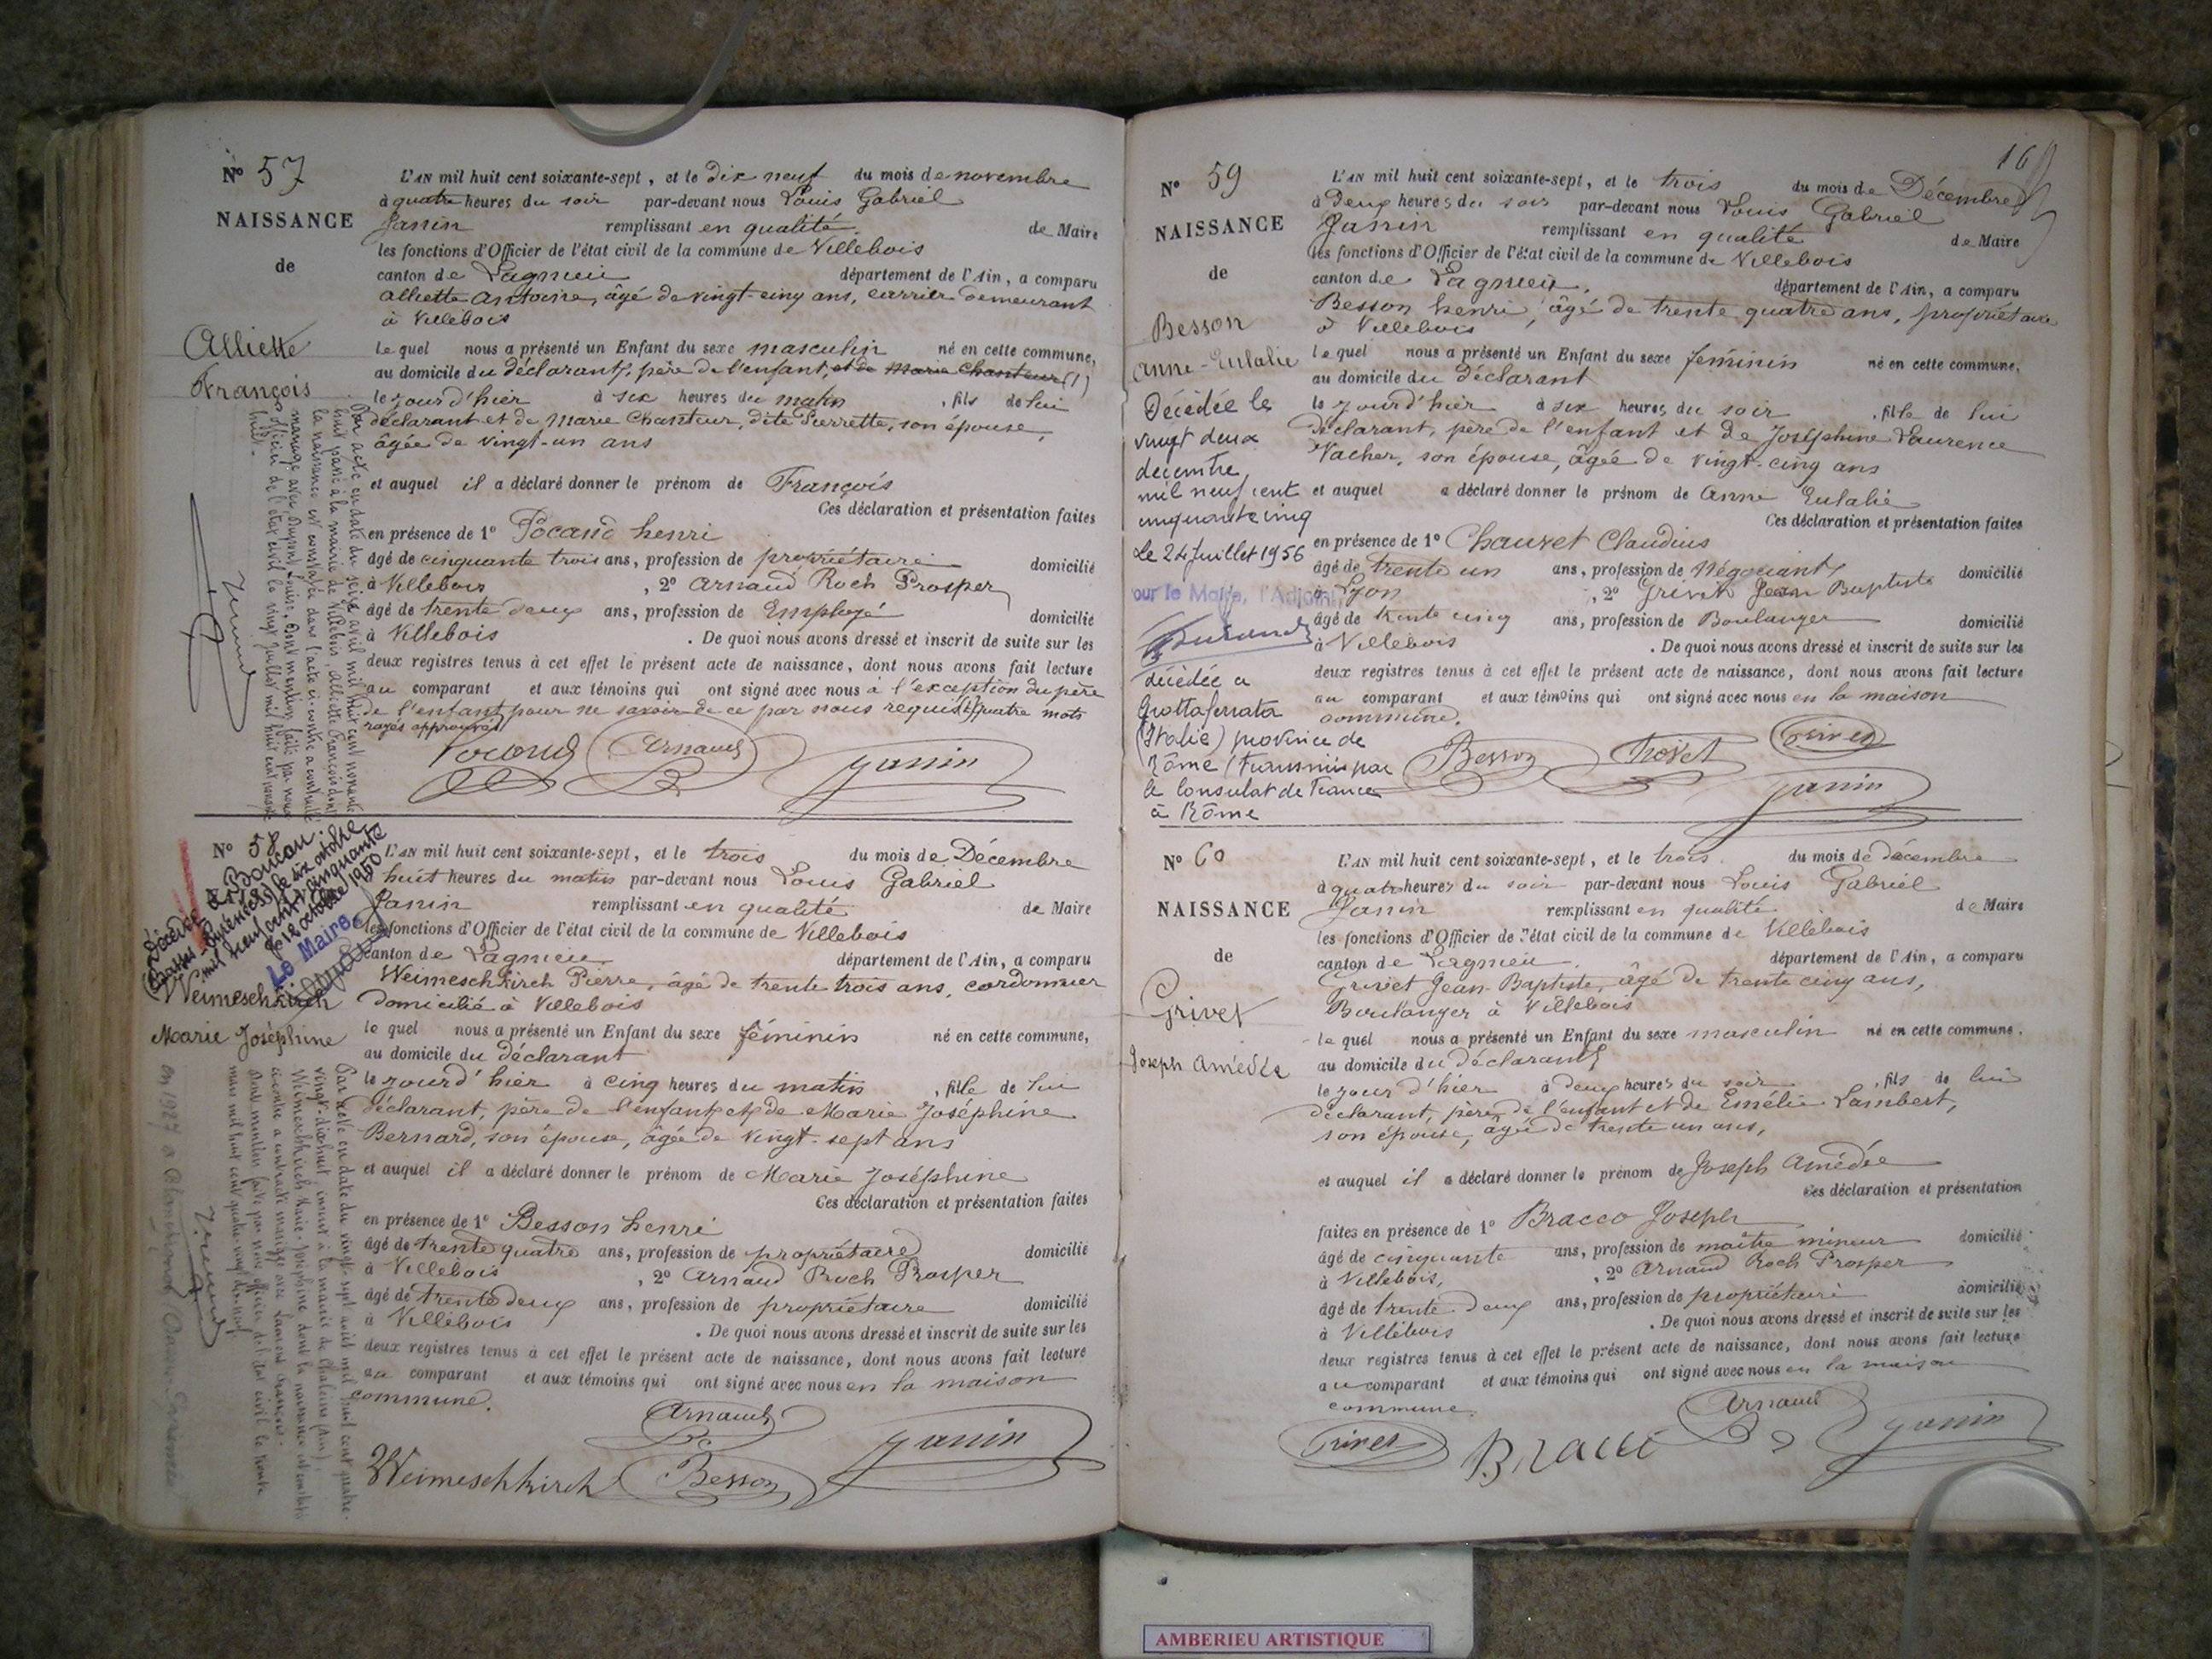 Nº 57
NAISSANCE
de
Alliette
François
L'AN mil huit cent soixante-sept, et le dix neuf du mois de novembre
à quatre heures du soir par-devant nous Louis Gabriel
Janin remplissant en qualité de Maire
les fonctions d'Officier de l'état civil de la commune de Villebois
canton de Lagnieu département de l'Ain, a comparu
Alliette Antoine, âgé de vingt-cinq ans, carrier demeurant
à Villebois
le quel nous a présenté un Enfant du sexe masculin né en cette commune,
au domicile du déclarant, père de l'enfant, et de Marie Chanteur (1)
le jour d'hier à six heures du matin, fils de lui
déclarant et de Marie Chanteur, dite Pierrette, son épouse,
âgée de vingt-un ans
et auquel il a déclaré donner le prénom de François
Ces déclaration et présentation faites
en présence de 1º Pocand henri
âgé de cinquante trois ans, profession de propriétaire domicilié
à Villebois, 2º Arnaud Roch Prosper
âgé de trente deux ans, profession de Employé domicilié
à Villebois. De quoi nous avons dressé et inscrit de suite sur les
deux registres tenus à cet effet le présent acte de naissance, dont nous avons fait lecture
au comparant et aux témoins qui ont signé avec nous à l'exception du père
de l'enfant pour ne savoir de ce par nous requis (1) quatre mots
rayés approuvés
Pocand Arnaud Janin
Par acte en date du seize avril mil huit cent nonante
huit passé à la mairie de Villebois, Alliette François dont
la naissance est constatée dans l'acte ci-contre a contracté
mariage avec Dupont Louise. Dont mention faite par nous
officier de l'état civil le vingt juillet mil huit cent nonante
huit.
Nº 58
Décédée à Boucau
(Basses-Pyrénées) le six octobre
mil neuf cent cinquante
le 12 octobre 1950
Le Maire
Weimeschkirch
Marie Joséphine
L'AN mil huit cent soixante-sept, et le trois du mois de Décembre
huit heures du matin par-devant nous Louis Gabriel
Janin remplissant en qualité de Maire
les fonctions d'Officier de l'état civil de la commune de Villebois
canton de Lagnieu département de l'Ain, a comparu
Weimeschkirch Pierre, âgé de trente trois ans, cordonnier
domicilié à Villebois
le quel nous a présenté un Enfant du sexe féminin né en cette commune,
au domicile du déclarant
le jour d'hier à cinq heures du matin, fille de lui
déclarant, père de l'enfant et de Marie Joséphine
Bernard, son épouse, âgée de vingt-sept ans
et auquel il a déclaré donner le prénom de Marie Joséphine
Ces déclaration et présentation faites
en présence de 1º Besson henri
âgé de trente quatre ans, profession de propriétaire domicilié
à Villebois, 2º Arnaud Roch Prosper
âgé de trente deux ans, profession de propriétaire domicilié
à Villebois. De quoi nous avons dressé et inscrit de suite sur les
deux registres tenus à cet effet le présent acte de naissance, dont nous avons fait lecture
au comparant et aux témoins qui ont signé avec nous en la maison
commune.
Arnaud Janin
Weimeschkirch Besson
Par acte en date du vingt sept août mil huit cent quatre-
vingt-dix huit inscrit à la mairie de Chaleins (Ain),
Weimeschkirch Marie-Joséphine dont la naissance est constatée
ci-contre a contracté mariage avec Laurent François.
Dont mention faite par nous officier de l'état civil le trente
mars mil huit cent quatre-vingt dix-neuf.
16
Nº 59
NAISSANCE
de
Besson
Anne-Eulalie
Décédée le
vingt deux
décembre
mil neuf cent
cinquante cinq
Le 24 Juillet 1956
our le Maire, l'Adjoint
décédée à
Grottaferrata
(Italie) province de
Rôme (transmis par
le Consulat de France
à Rôme
L'AN mil huit cent soixante-sept, et le trois du mois de Décembre
à Deux heures du soir par-devant nous Louis Gabriel
Janin remplissant en qualité de Maire
les fonctions d'Officier de l'état civil de la commune de Villebois
canton de Lagnieu. département de l'Ain, a comparu
Besson henri, âgé de trente quatre ans, propriétaire
à Villebois
le quel nous a présenté un Enfant du sexe féminin né en cette commune,
au domicile du déclarant
le jour d'hier à six heures du soir, fille de lui
déclarant, père de l'enfant et de Joséphine Laurence
Vacher, son épouse, âgée de vingt-cinq ans
et auquel a déclaré donner le prénom de Anne Eulalie
Ces déclaration et présentation faites
en présence de 1º Chauvet Claudius
âgé de trente un ans, profession de Négociant domicilié
à Lyon, 2º Grivet Jean Baptiste
âgé de trente cinq ans, profession de Boulanger domicilié
à Villebois. De quoi nous avons dressé et inscrit de suite sur les
deux registres tenus à cet effet le présent acte de naissance, dont nous avons fait lecture
au comparant et aux témoins qui ont signé avec nous en la maison
commune.
Besson Grivet
Janin
Nº 60
NAISSANCE
de
Grivet
Joseph Amédée
L'AN mil huit cent soixante-sept, et le trois du mois de décembre
à quatre heures du soir par-devant nous Louis Gabriel
Janin remplissant en qualité de Maire
les fonctions d'Officier de l'état civil de la commune de Villebois
canton de Lagnieu. département de l'Ain, a comparu
Grivet Jean-Baptiste, âgé de trente cinq ans,
Boulanger à Villebois
le quel nous a présenté un Enfant du sexe masculin né en cette commune.
au domicile du déclarant
le jour d'hier à deux heures du soir, fils de lui
déclarant, père de l'enfant et de Emélie Lambert,
son épouse, âgée de trente un ans,
et auquel il a déclaré donner le prénom de Joseph Amédée
Ces déclaration et présentation
faites en présence de 1º Bracco Joseph
âgé de cinquante ans, profession de maître mineur domicilié
à Villebois, 2º Arnaud Roch Prosper
âgé de trente-deux ans, profession de propriétaire domicilié
à Villebois. De quoi nous avons dressé et inscrit de suite sur les
deux registres tenus à cet effet le présent acte de naissance, dont nous avons fait lecture
au comparant et aux témoins qui ont signé avec nous en la maison
commune.
Grivet Bracco Arnaud Janin
AMBERIEU ARTISTIQUE